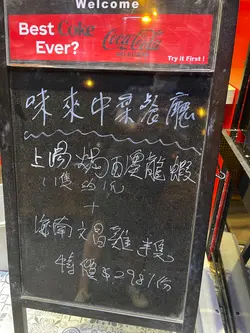 Welcome
Best Coke
Ever?
Coca-Cola
Try it First!
味來中菜餐廳
上湯焗龍蝦
+
海南文昌雞半隻
特價$298/份